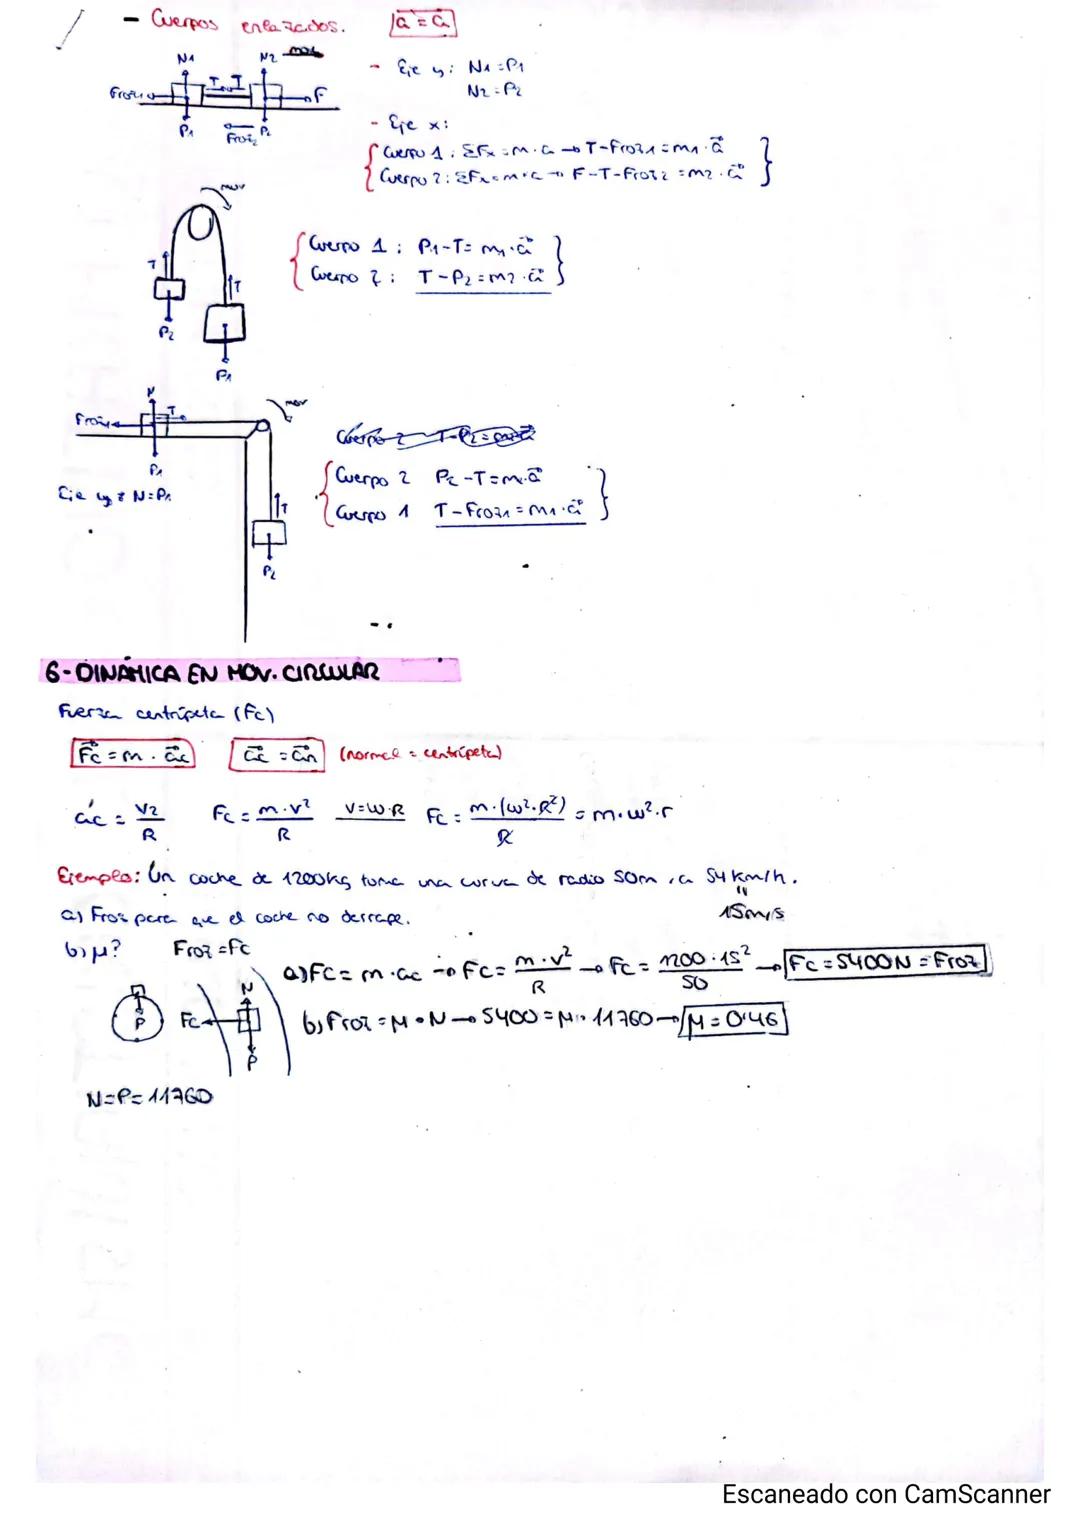 - Cuerpos enlazados. a = a
- Eje y: N1 = P1
N2 = P2
N1 N2 mov
Froz1 T T F
P1 Froz2 P2
- Eje x:
Cuerpo 1: ΣFx = m·a → T - Froz1 = m1·a⃗
Cuerpo 2: ΣFx = m·a → F - T - Froz2 = m2·a⃗
mov
T T
P2
P1
Cuerpo 1: P1 - T = m1·a⃗
Cuerpo 2: T - P2 = m2·a⃗
N T mov
Froz1
P1
Eje y: N = P1
T
P2
Cuerpo 2 P2 - T = m·a⃗
Cuerpo 1 T - Froz1 = m1·a⃗
6- DINÁMICA EN MOV. CIRCULAR
Fuerza centrípeta (Fc)
F⃗c = m · a⃗c a⃗c = a⃗n (normal = centrípeta)
ac = v2/R Fc = m·v²/R v = w·R Fc = m·(w²·R²)/R = m·w²·r
Ejemplo: Un coche de 1200kg toma una curva de radio 50m, a 54 km/h.
"
15m/s
a) Froz para que el coche no derrape.
b) μ? Froz = Fc
a) Fc = m·ac → Fc = m·v²/R → Fc = 1200·15²/50 → Fc = 5400N = Froz
b) Froz = μ · N → 5400 = μ · 11760 → μ = 0'46
P Fc N P
N = P = 11760
Escaneado con CamScanner